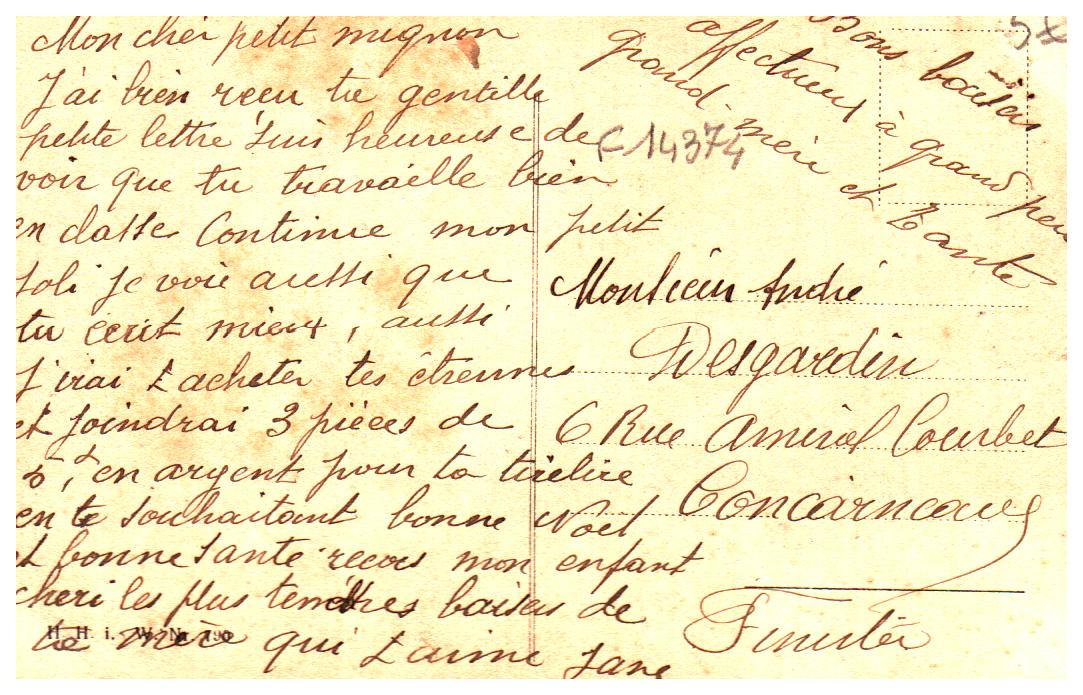 Mon cher petit mignon
J'ai bien reçu ta gentille
petite lettre suis heureuse de
voir que tu travaille bien
en classe Continue mon petit
joli je voie aussi que
tu ecrit mieux, aussi
j'irai t'acheter tes étrennes
et joindrai 3 pièces de
5 f en argent pour ta tirelire
en te souhaitant bonne Noël
et bonne santé recois mon enfant
cheri les plus tendres baisers de
ta mère qui t'aime Jane
H. H. i. W. Nr. 190
Bons baisers
affectueux à grand père
grand-mère et Tante
5x
F 14374
Monsieur André
Desgardin
6 Rue Amiral Courbet
Concarneau
Finistèr